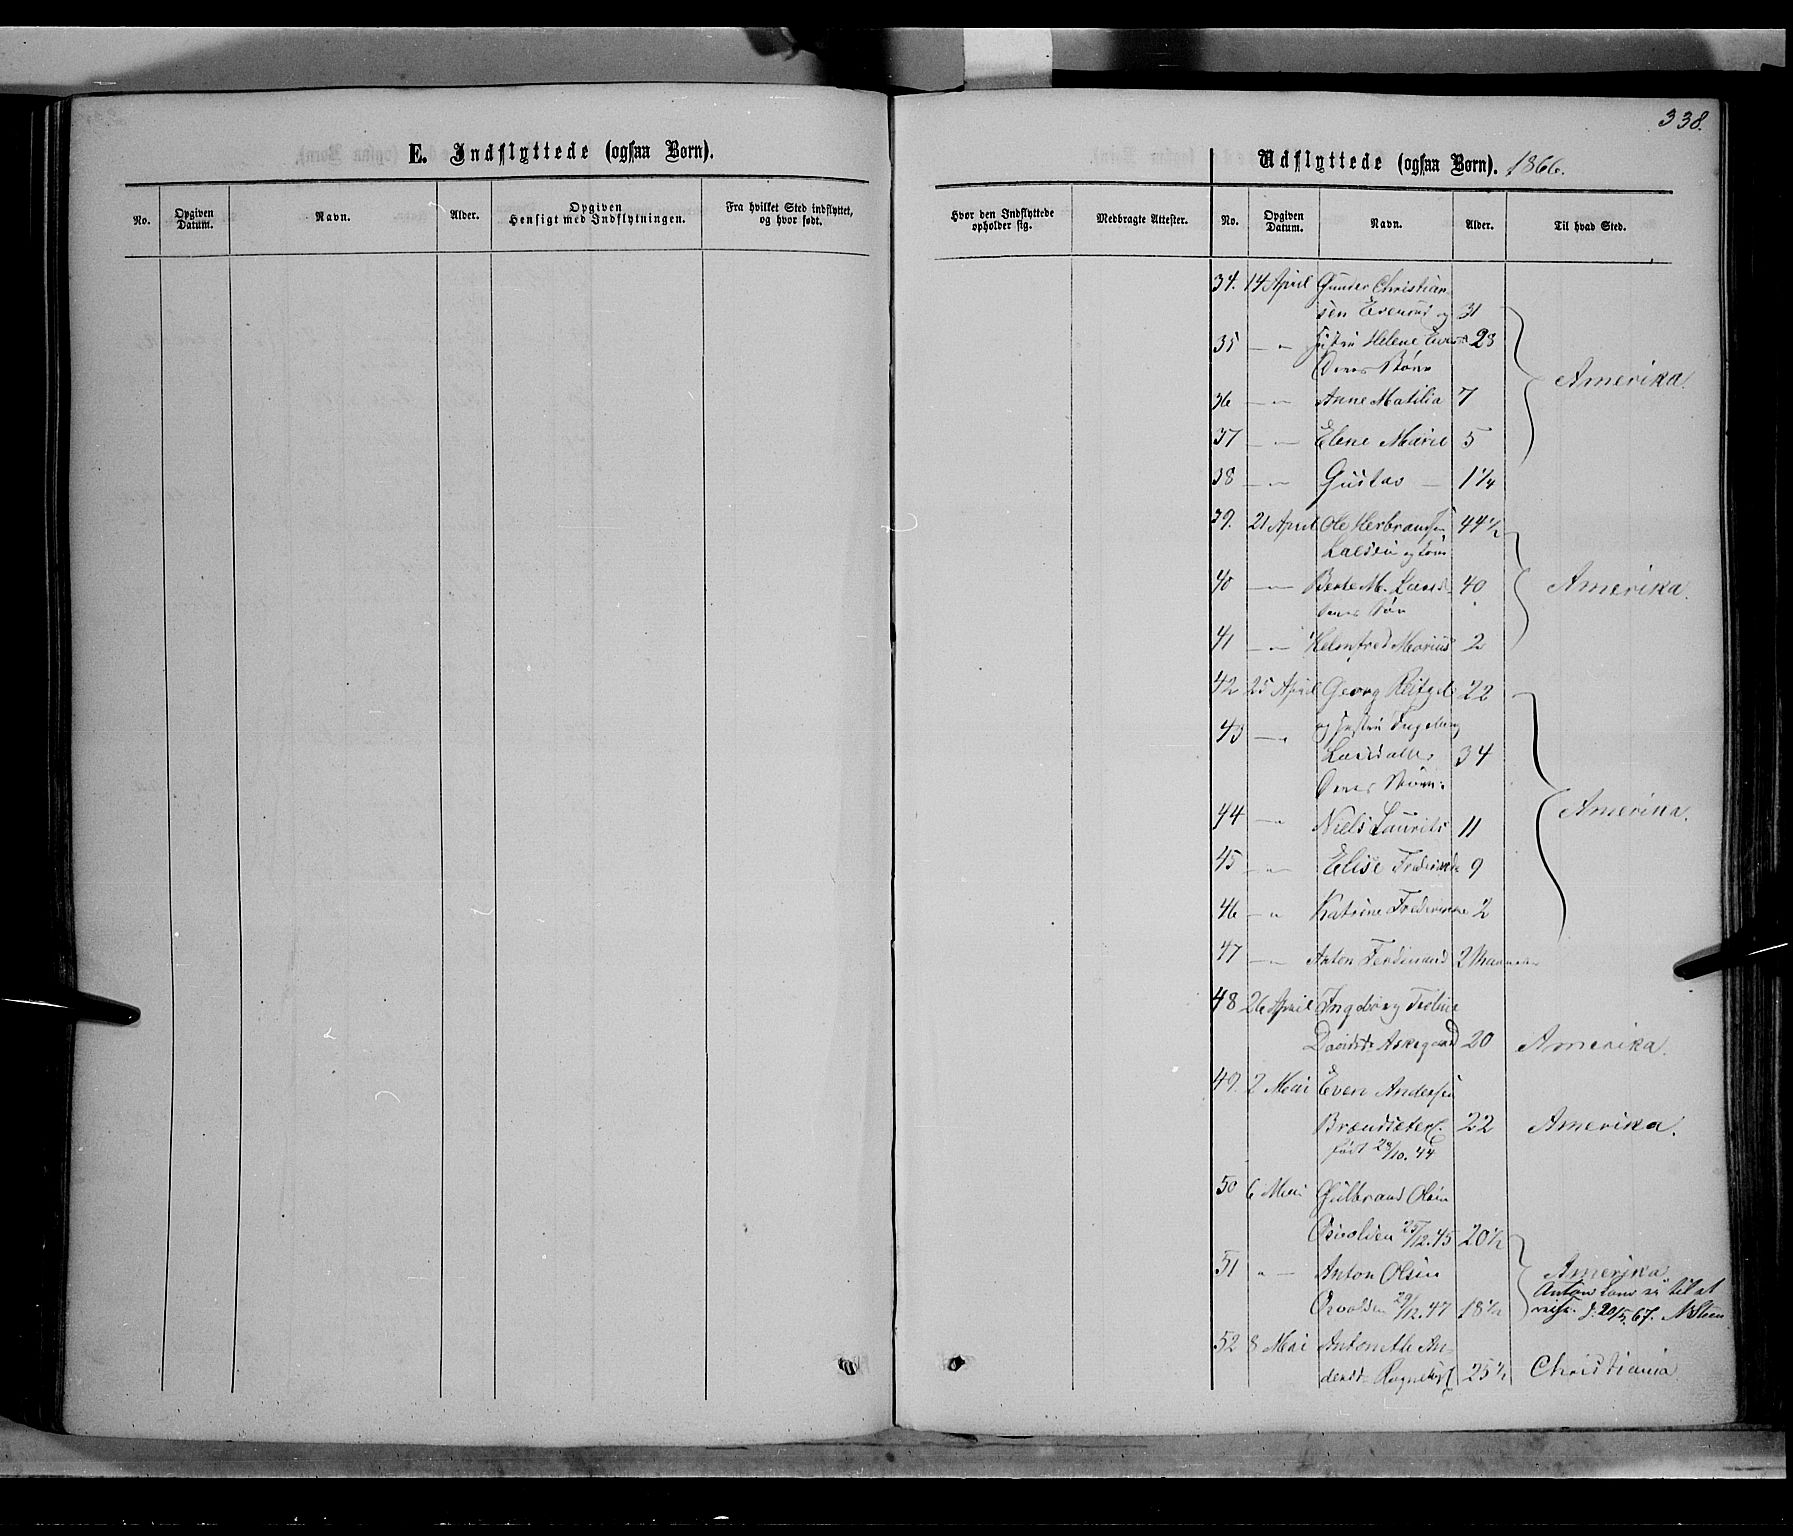 338.
E. Indflyttede (ogsaa Børn).
Udflyttede (ogsaa Børn). 1866.
No. Opgiven Datum. Navn. Alder. Opgiven Hensigt med Indflytningen. Fra hvilket Sted indflyttet, og hvor født.
Hvor den Indflyttede opholder sig. Medbragte Attester. No. Opgiven Datum. Navn. Alder. Til hvad Sted.
34. 14 April Gunder Christian-
sen Evensrud og 31
35 — " Hustru Helene 28
Deres Børn
Amerika.
36 — " Anne Matilia 7
37 — " Elene Marie 5
38 — " Gustav — 1 1/4
39. 21 April Ole Herbransen 44 1/2
og Kone
40 — " Berte M. 40
Amerika.
deres Søn
41 — " Helmfred Marius 2
42 25 April Georg 22
43 — " og Hustru Ingeborg
34
Deres Børn:
44 — " Niels Laurits 11
Amerika.
45 — " Elise Frederikke 9
46 — " Katrine Frederikke 2
47 — " Anton Ferdinand 2 Maaneder
48 26 April Ingeborg
Davidsdr Askegaard 20 Amerika.
49. 2 Mai Even Andersen
Brændsæter. 22 Amerika.
født 28/10. 44
50 6 Mai Gulbrand Olsen
25/12.45 20 1/2
51 " — Anton Olsen Amerika.
Anton kom ei til at
29/12.47 18 1/2 reise. d. 20/5 67. N Steen
52 8 Mai Antonette An-
dersdr 25 1/2 Christiania.